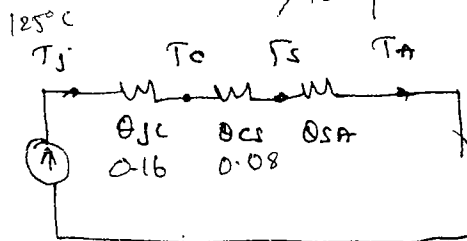 125°C
Tj TC TS TA
θJC θCS θSA
0.16 0.08